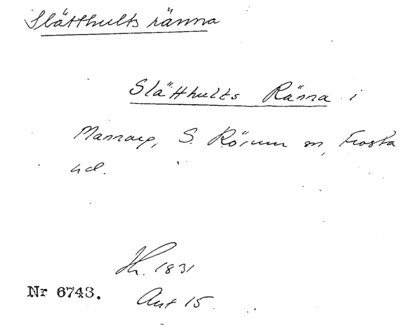 Slätthults ränna
Slätthults Ränna i
S. Rörum sn, Frosta
hd.
Nr 6743.
1831
Akt 15.